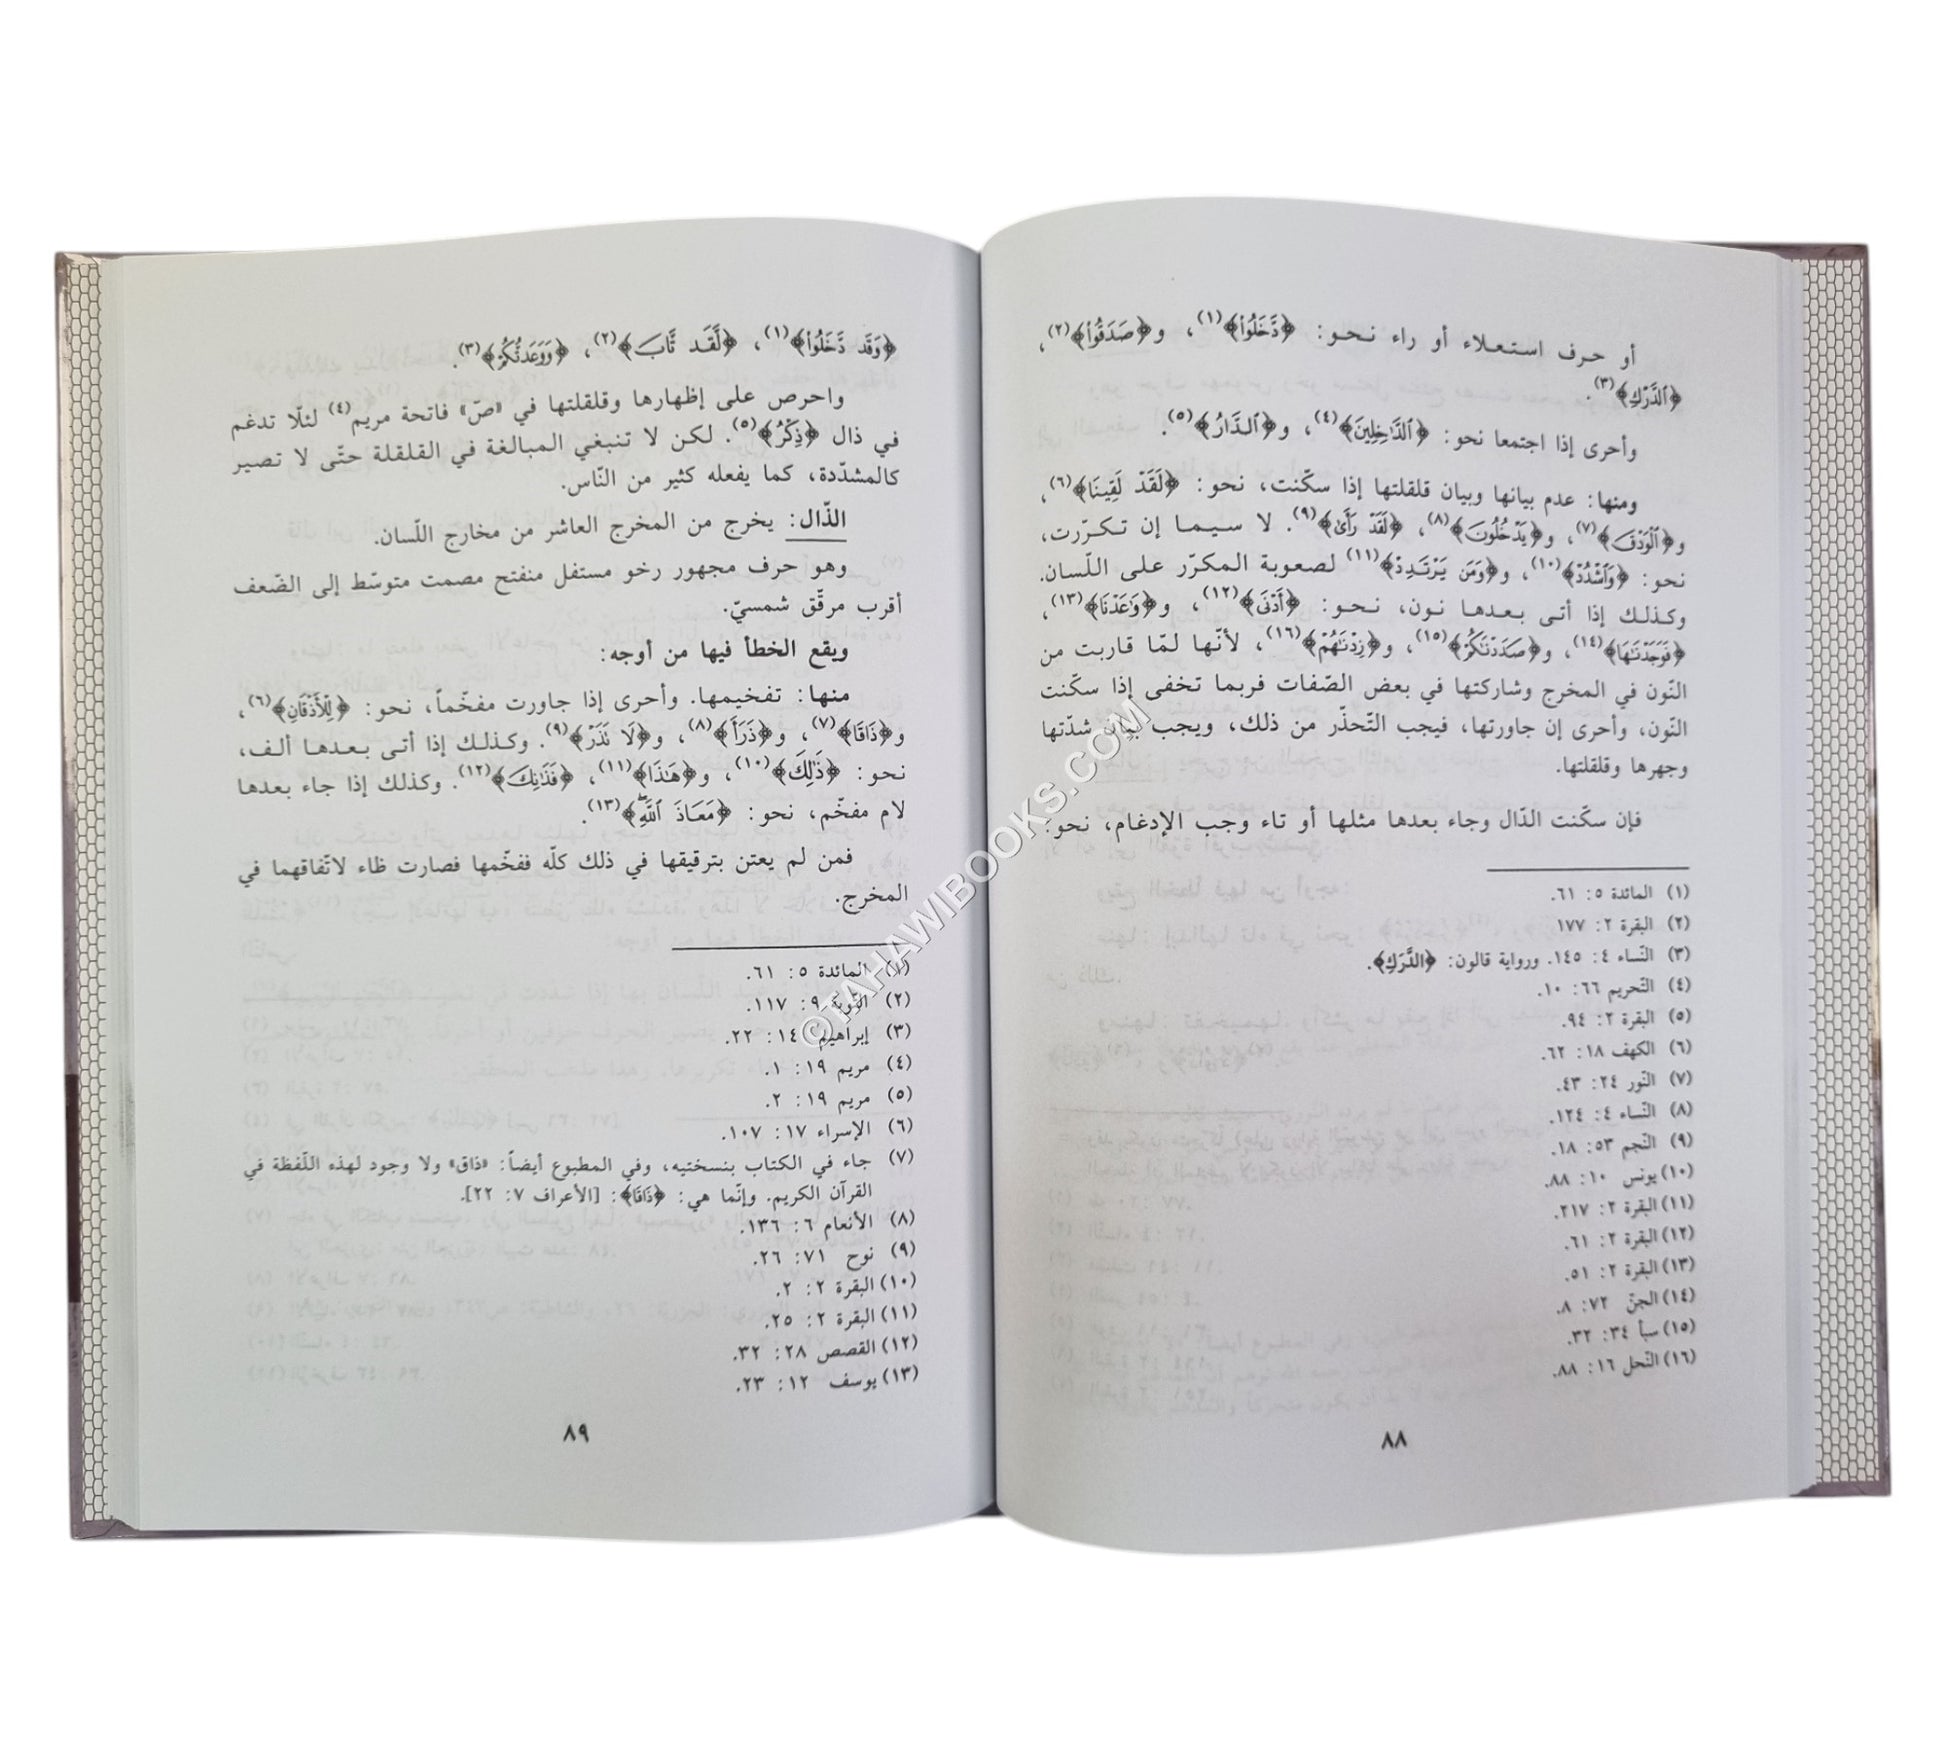 أو حرف استعلاء أو راء نحو: ﴿دَّخَلُوا۟﴾(١)، و﴿صَدَقُوا۟﴾(٢)،
﴿ٱلدَّرۡكِ﴾(٣).
وأحرى إذا اجتمعا نحو: ﴿ٱلدَّٰخِلِينَ﴾(٤)، و﴿ٱلدَّارُ﴾(٥).
ومنها: عدم بيانها وبيان قلقلتها إذا سكّنت، نحو: ﴿لَقَدۡ لَقِينَا﴾(٦)،
و﴿ٱلۡوَدۡقَ﴾(٧)، و﴿يَدۡخُلُونَ﴾(٨)، ﴿لَقَدۡ رَأَىٰ﴾(٩). لا سيما إن تكرّرت،
نحو: ﴿وَٱشۡدُدۡ﴾(١٠)، و﴿وَمَن يَرۡتَدِدۡ﴾(١١) لصعوبة المكرّر على اللّسان.
وكذلك إذا أتى بعدها نون، نحو: ﴿أَدۡنَىٰ﴾(١٢)، و﴿وَٰعَدۡنَا﴾(١٣)،
﴿فَوَجَدۡنَٰهَا﴾(١٤)، و﴿صَدَدۡنَٰكُمۡ﴾(١٥)، و﴿زِدۡنَٰهُمۡ﴾(١٦)، لأنّها لمّا قاربت من
النّون في المخرج وشاركتها في بعض الصّفات فربما تخفى إذا سكّنت
النّون، وأحرى إن جاورتها، فيجب التّحذّر من ذلك، ويجب بيان شدّتها
وجهرها وقلقلتها.
فإن سكّنت الدّال وجاء بعدها مثلها أو تاء وجب الإدغام، نحو:
(١) المائدة ٥: ٦١.
(٢) البقرة ٢: ١٧٧
(٣) النّساء ٤: ١٤٥. ورواية قالون: ﴿الدَّرَكِ﴾.
(٤) التّحريم ٦٦: ١٠.
(٥) البقرة ٢: ٩٤.
(٦) الكهف ١٨: ٦٢.
(٧) النّور ٢٤: ٤٣.
(٨) النّساء ٤: ١٢٤.
(٩) النّجم ٥٣: ١٨.
(١٠) يونس ١٠: ٨٨.
(١١) البقرة ٢: ٢١٧.
(١٢) البقرة ٢: ٦١.
(١٣) البقرة ٢: ٥١.
(١٤) الجنّ ٧٢: ٨.
(١٥) سبأ ٣٤: ٣٢.
(١٦) النّحل ١٦: ٨٨.
٨٨
﴿وَقَد دَّخَلُوا۟﴾(١)، ﴿لَّقَد تَّابَ﴾(٢)، ﴿وَوَعَدتُّكُمۡ﴾(٣).
واحرص على إظهارها وقلقلتها في «صّ» فاتحة مريم(٤) لئلّا تدغم
في ذال ﴿ذِكۡرُ﴾(٥). لكن لا تنبغي المبالغة في القلقلة حتّى لا تصير
كالمشدّدة، كما يفعله كثير من النّاس.
الذّال: يخرج من المخرج العاشر من مخارج اللّسان.
وهو حرف مجهور رخو مستفل منفتح مصمت متوسّط إلى الضّعف
أقرب مرقّق شمسيّ.
ويقع الخطأ فيها من أوجه:
منها: تفخيمها. وأحرى إذا جاورت مفخّماً، نحو: ﴿لِلۡأَذۡقَانِ﴾(٦)،
و﴿ذَاقَا﴾(٧)، و﴿ذَرَأَ﴾(٨)، و﴿لَا تَذَرۡ﴾(٩). وكذلك إذا أتى بعدها ألف،
نحو: ﴿ذَٰلِكَ﴾(١٠)، و﴿هَٰذَا﴾(١١)، ﴿فَذَٰنِكَ﴾(١٢). وكذلك إذا جاء بعدها
لام مفخّم، نحو: ﴿مَعَاذَ ٱللَّهِۖ﴾(١٣).
فمن لم يعتن بترقيقها في ذلك كلّه ففخّمها فصارت ظاء لاتّفاقهما في
المخرج.
(١) المائدة ٥: ٦١.
(٢) التّوبة ٩: ١١٧.
(٣) إبراهيم ١٤: ٢٢.
(٤) مريم ١٩: ١.
(٥) مريم ١٩: ٢.
(٦) الإسراء ١٧: ١٠٧.
(٧) جاء في الكتاب بنسختيه، وفي المطبوع أيضاً: «ذاق» ولا وجود لهذه اللّفظة في
القرآن الكريم. وإنّما هي: ﴿ذَاقَا﴾: [الأعراف ٧: ٢٢].
(٨) الأنعام ٦: ١٣٦.
(٩) نوح ٧١: ٢٦.
(١٠) البقرة ٢: ٢.
(١١) البقرة ٢: ٢٥.
(١٢) القصص ٢٨: ٣٢.
(١٣) يوسف ١٢: ٢٣.
٨٩
©TAHAWIBOOKS.COM